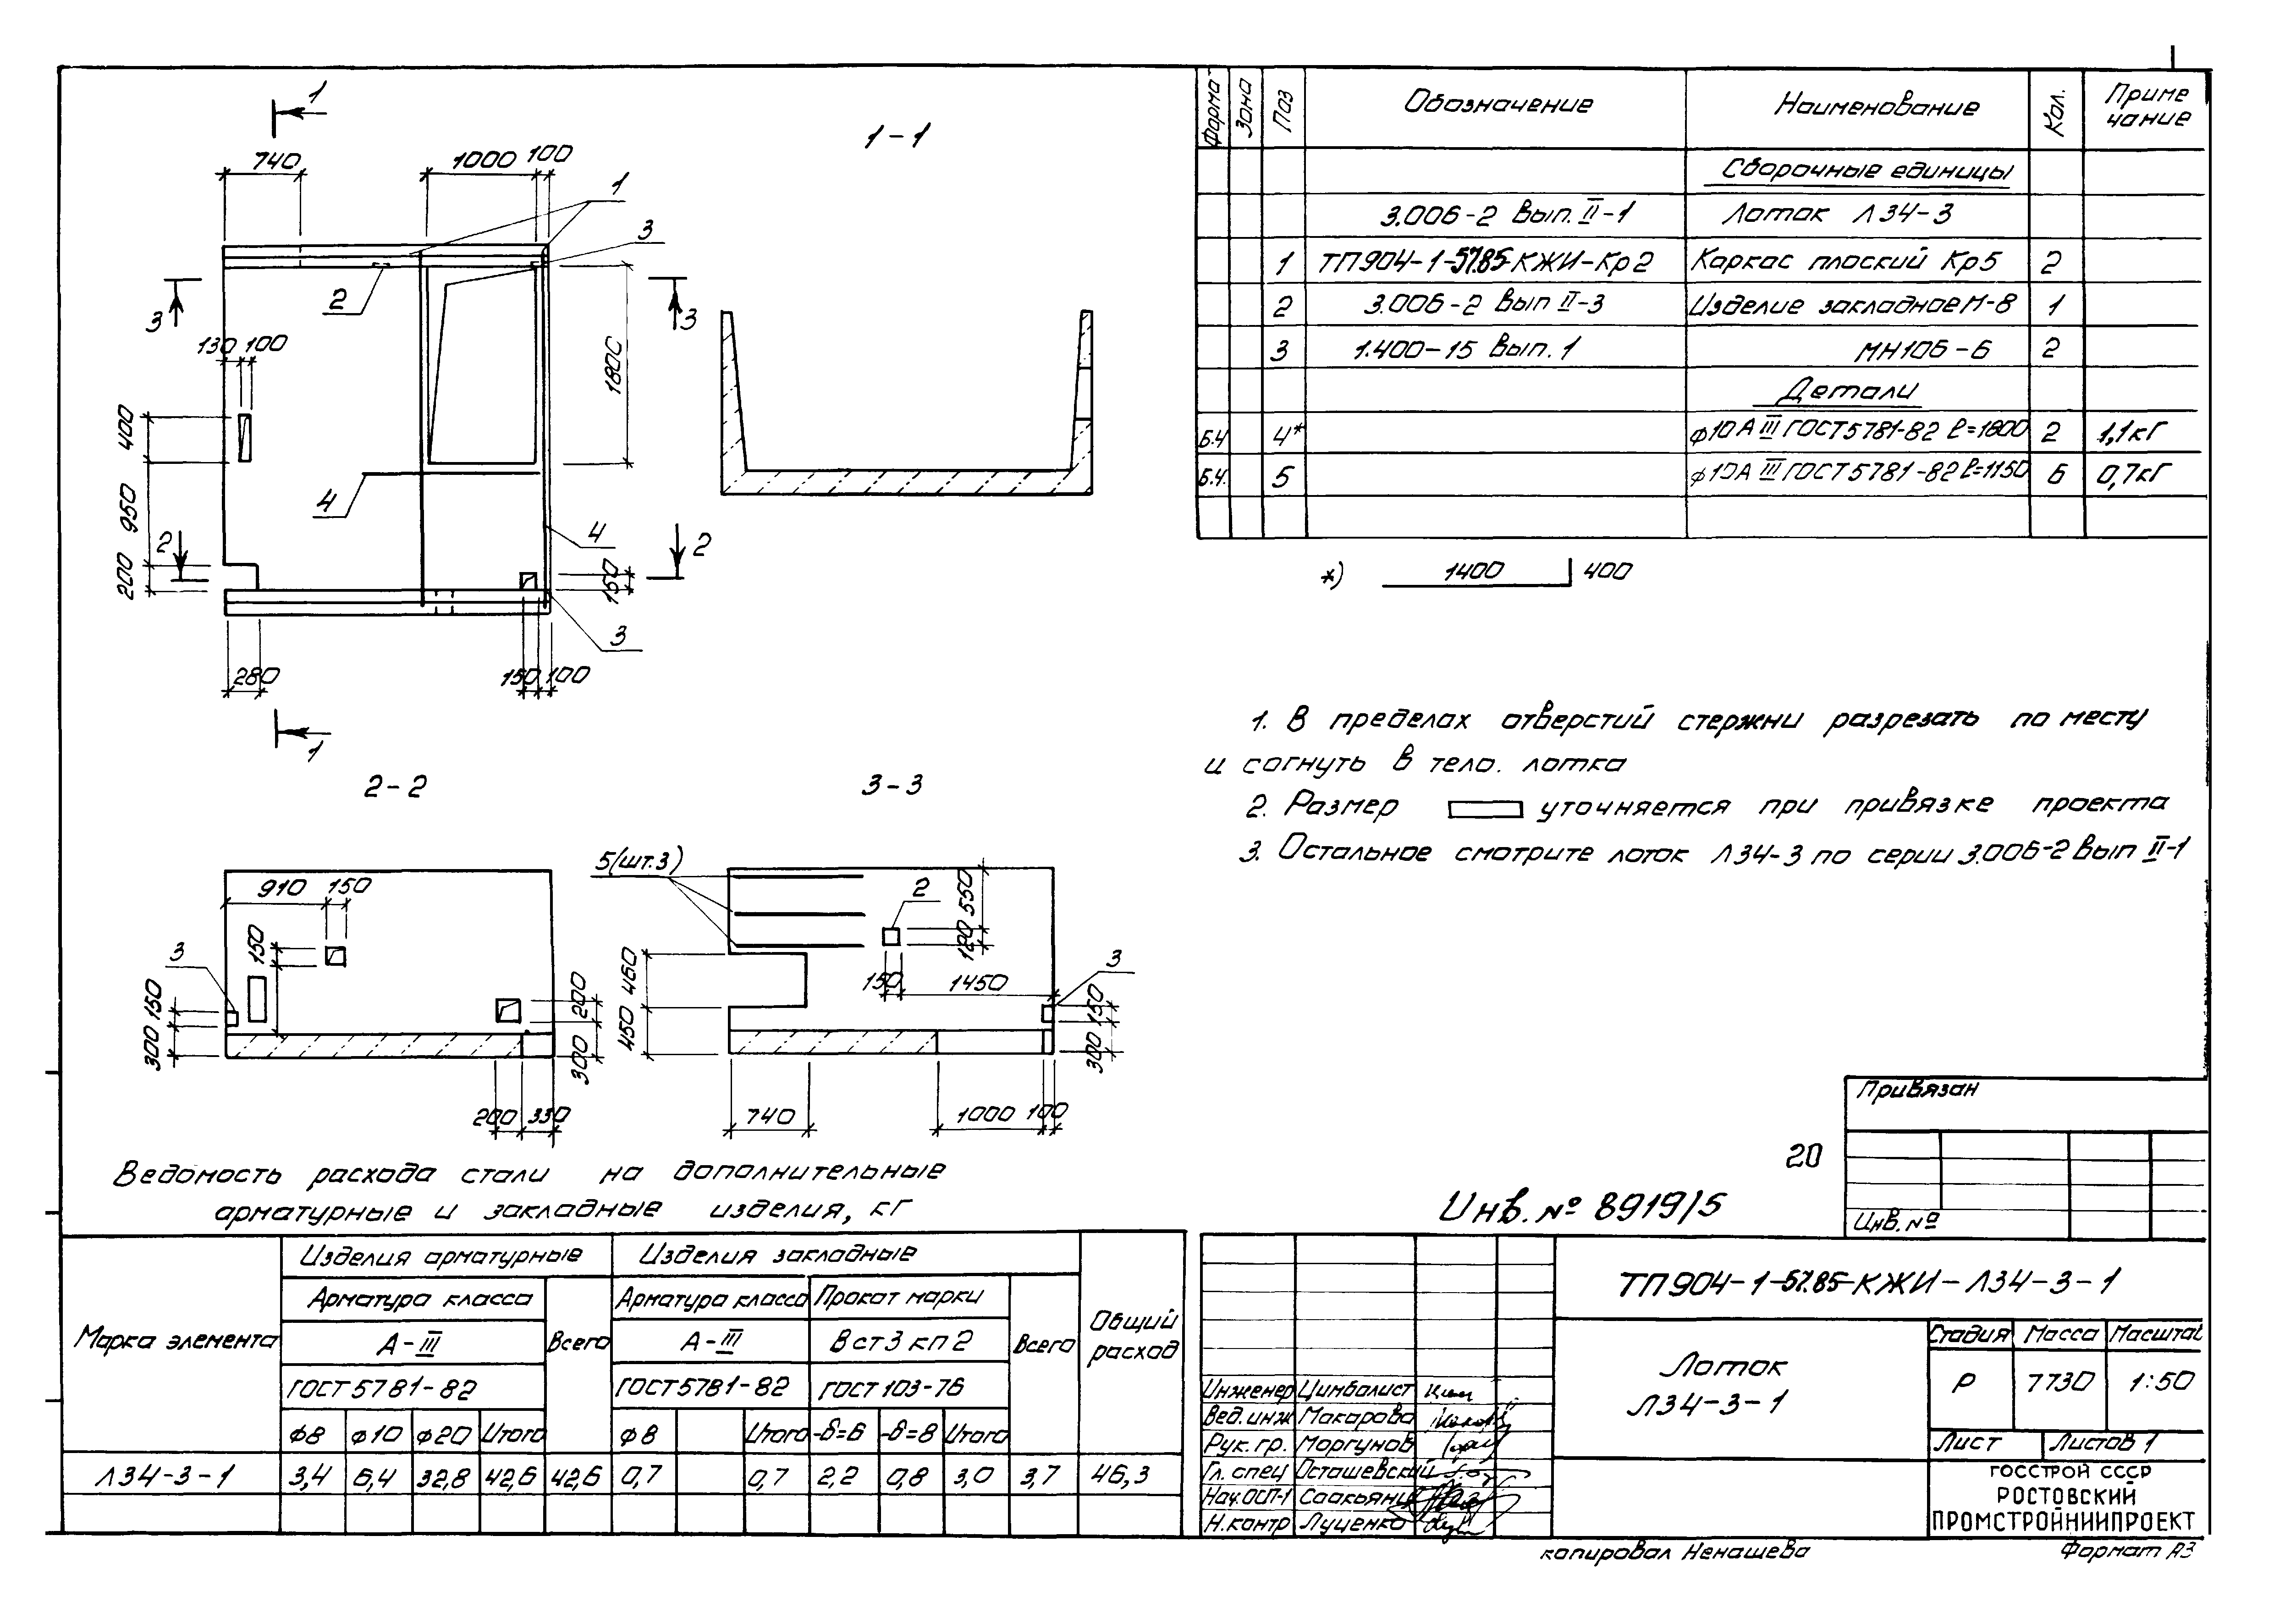 1
740
1000 100
1
3
2
3
3
130 100
1800
400
950
200
4
4
2
2
150
3
280
150 100
1
1-1
2-2
910 150
150
3
150
300
200
300
200 330
3-3
5(шт.3)
2
550
150 1450
460
450
3
150
300
740
1000 100
Формат Зона Поз Обозначение Наименование Кол. Приме
чание
Сборочные единицы
3.006-2 Вып. II-1 Лоток Л34-3
1 ТП904-1-57.85-КЖИ-Кр2 Каркас плоский Кр5 2
2 3.006-2 Вып II-3 Изделие закладное М-8 1
3 1.400-15 Вып. 1 МН106-6 2
Детали
Б.Ч 4* ф10АIII ГОСТ5781-82 ℓ=1800 2 1,1кг
Б.Ч. 5 ф10АIII ГОСТ5781-82 ℓ=1150 6 0,7кг
*) 1400 400
1. В пределах отверстий стержни разрезать по месту
и согнуть в тело. лотка
2. Размер уточняется при привязке проекта
3. Остальное смотрите лоток Л34-3 по серии 3.006-2 Вып II-1
Привязан
20
Инв. №
Инв. № 8919/5
Ведомость расхода стали на дополнительные
арматурные и закладные изделия, кг
Марка элемента Изделия арматурные Изделия закладные Общий
расход
Арматура класса Всего Арматура класса Прокат марки Всего
А-III А-III Вст3кп2
ГОСТ5781-82 ГОСТ5781-82 ГОСТ103-76
ф8 ф10 ф20 Итого ф8 Итого -δ=6 -δ=8 Итого
Л34-3-1 3,4 6,4 32,8 42,6 42,6 0,7 0,7 2,2 0,8 3,0 3,7 46,3
ТП904-1-57.85-КЖИ-Л34-3-1
Лоток
Л34-3-1
Стадия Масса Масштаб
Р 7730 1:50
Лист Листов 1
Инженер Цимбалист
Вед.инж Макарова
Рук. гр. Моргунов
Гл. спец Осташевский
Нач.ОСП-1 Саакьянц
Н.контр Луценко
ГОССТРОЙ СССР
РОСТОВСКИЙ
ПРОМСТРОЙНИИПРОЕКТ
копировал Ненашева
Формат А3